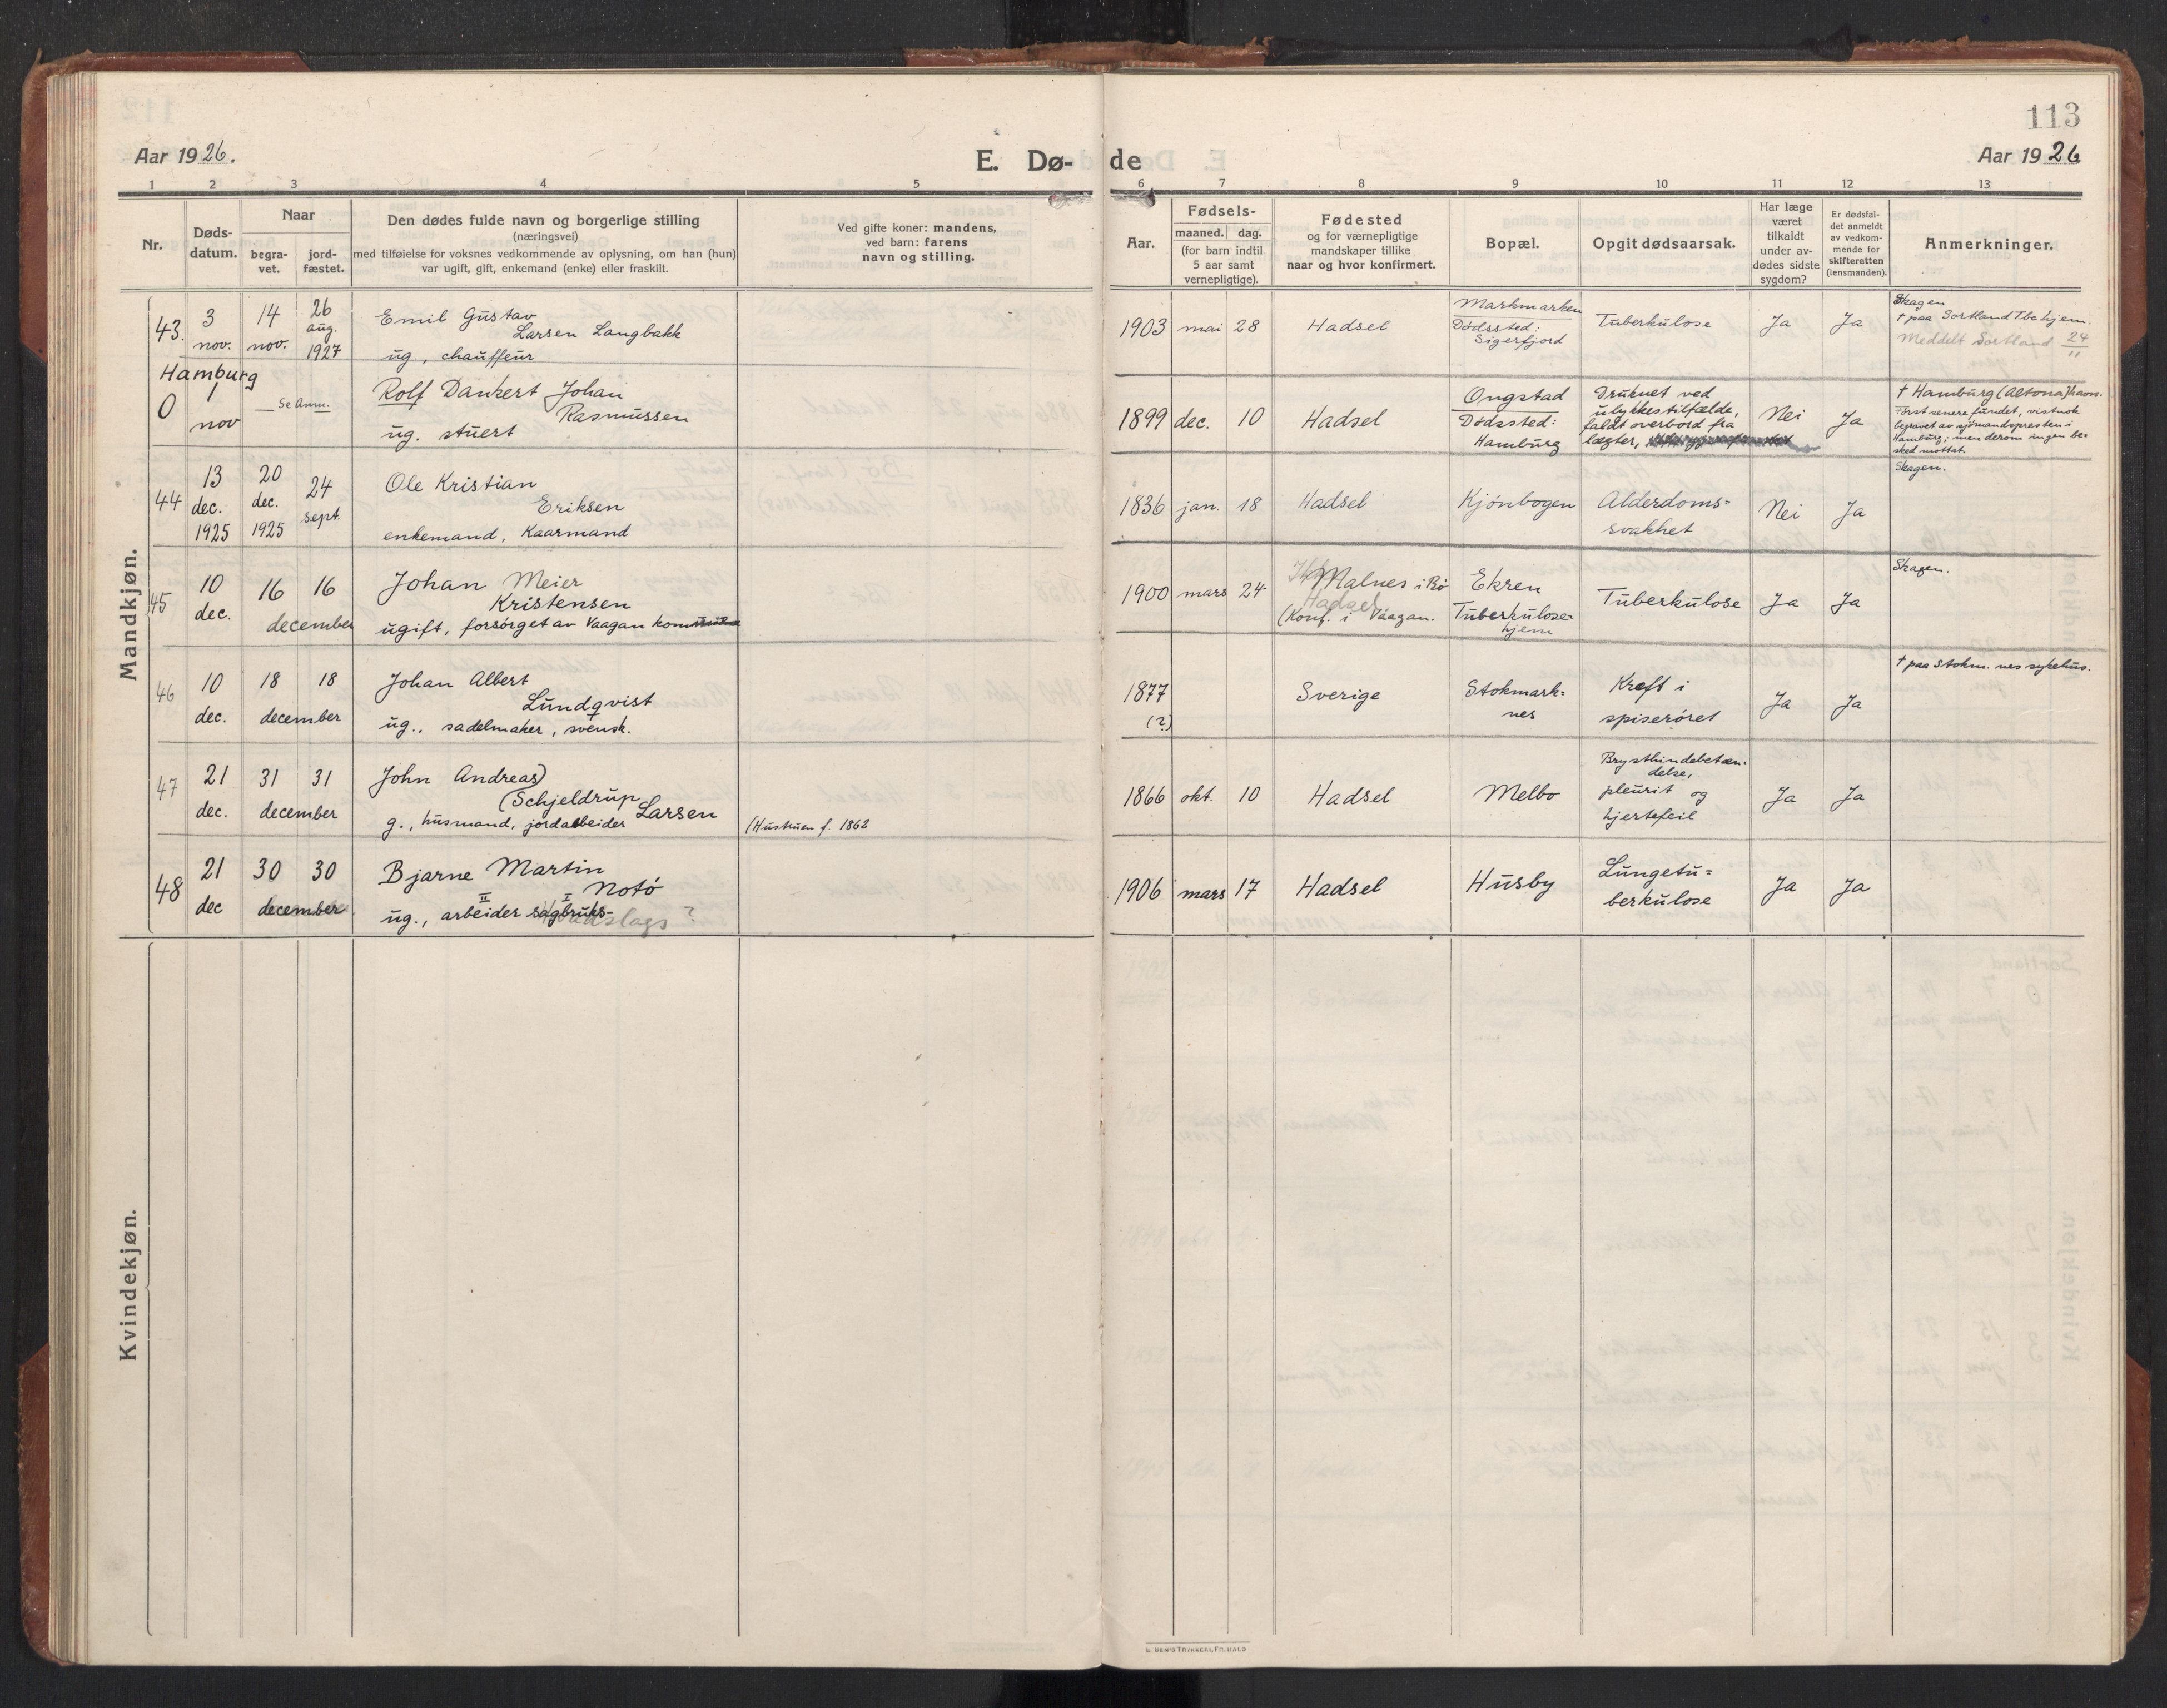 113
Aar 1926.
E. Dø-de
Aar 1926
1 2 3 4 5 6 7 8 9 10 11 12 13
Nr.
Døds-
datum.
Naar
begra-
vet.
jord-
fæstet.
Den dødes fulde navn og borgerlige stilling
(næringsvei)
med tilføielse for voksnes vedkommende av oplysning, om han (hun)
var ugift, gift, enkemand (enke) eller fraskilt.
Ved gifte koner: mandens,
ved barn: farens
navn og stilling.
Aar.
Fødsels-
maaned. dag.
(for barn indtil
5 aar samt
vernepligtige).
Fødested
og for værnepligtige
mandskaper tillike
naar og hvor konfirmert.
Bopæl.
Opgit dødsaarsak.
Har læge
været
tilkaldt
under av-
dødes sidste
sygdom?
Er dødsfal-
det anmeldt
av vedkom-
mende for
skifteretten
(lensmanden).
Anmerkninger.
Mandkjøn.
43.
3
nov.
14
nov.
26
aug.
1927
Emil Gustav
Larsen Langbakk
ug., chauffeur
1903 mai 28
Hadsel
Markmarken
Dødssted:
Sigerfjord
Tuberkulose
Ja
Ja
Skagen
† paa Sortland Tbc hjem.
Meddelt Sortland 24/11
Hamburg
0
1
nov
Se Anm.
Rolf Dankert Johan
Rasmussen
ug. stuert
1899 dec. 10
Hadsel
Ongstad
Dødssted:
Hamburg
Druknet ved
ulykkestilfælde,
faldt overbord fra
lægter,
Nei
Ja
† Hamburg (Altona) havn.
Først senere fundet, vistnok
begravet av sjømandspresten i
Hamburg; men derom ingen be-
sked mottat.
44
13
dec.
1925
20
dec.
1925
24
sept.
Ole Kristian
Eriksen
enkemand, Kaarmand
1836 jan. 18
Hadsel
Kjønbogen
Alderdoms-
svakhet
Nei
Ja
Skagen.
45
10
dec.
16 16
december
Johan Meier
Kristensen
ugift, forsørget av Vaagan kommune
1900 mars 24
Malnes i Bø
Hadsel
(Konf. i Vaagan.
Ekren
Tuberkulose-
hjem
Tuberkulose
Ja
Ja
Skagen.
46
10
dec.
18 18
december
Johan Albert
Lundqvist
ug., sadelmaker, svensk.
1877
(?)
Sverige
Stokmark-
nes
Kreft i
spiserøret
Ja
Ja
† paa Stokm. nes sykehus.
47
21
dec.
31 31
december
John Andreas
(Schjeldrup)
Larsen
g., husmand, jordarbeider
(Hustruen f. 1862
1866 okt. 10
Hadsel
Melbo
Brysthindebetæn-
delse,
pleurit og
hjertefeil
Ja
Ja
48
21
dec
30 30
december
Bjarne Martin
Notø
II I
ug., arbeider sagbruks-
Hvadslags?
1906 mars 17
Hadsel
Husby
Lungetu-
berkulose
Ja
Ja
Kvindekjøn.